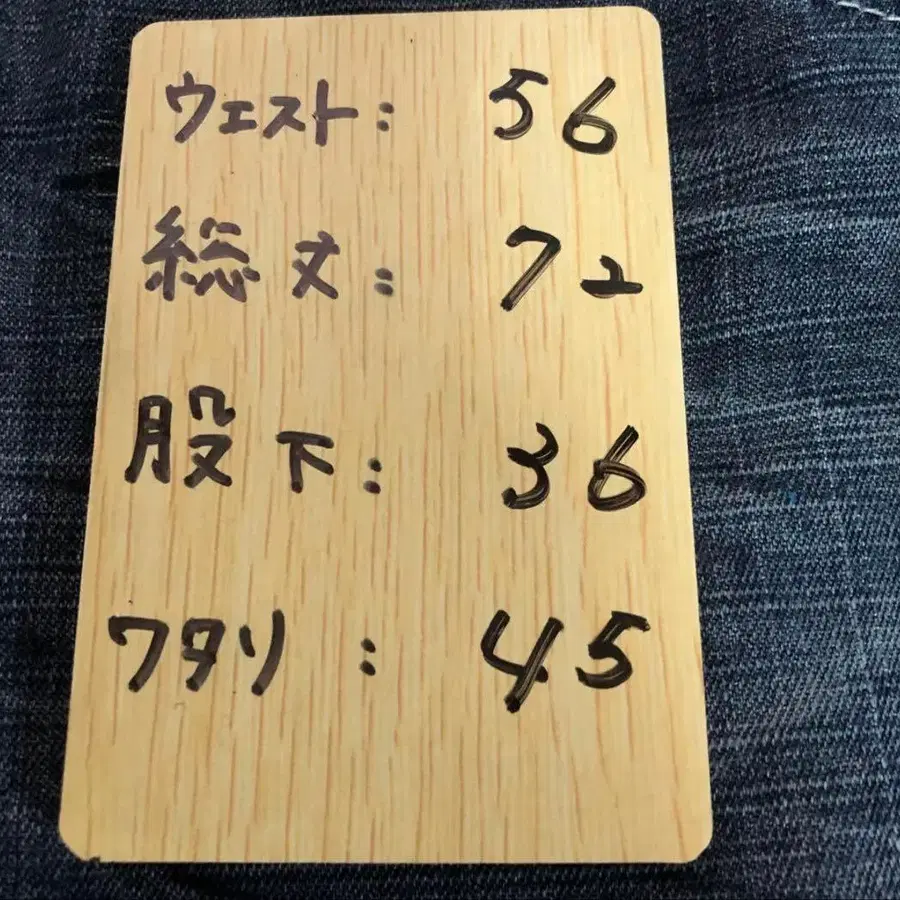 ウエスト: 56
総丈: 72
股下: 36
ワタリ: 45